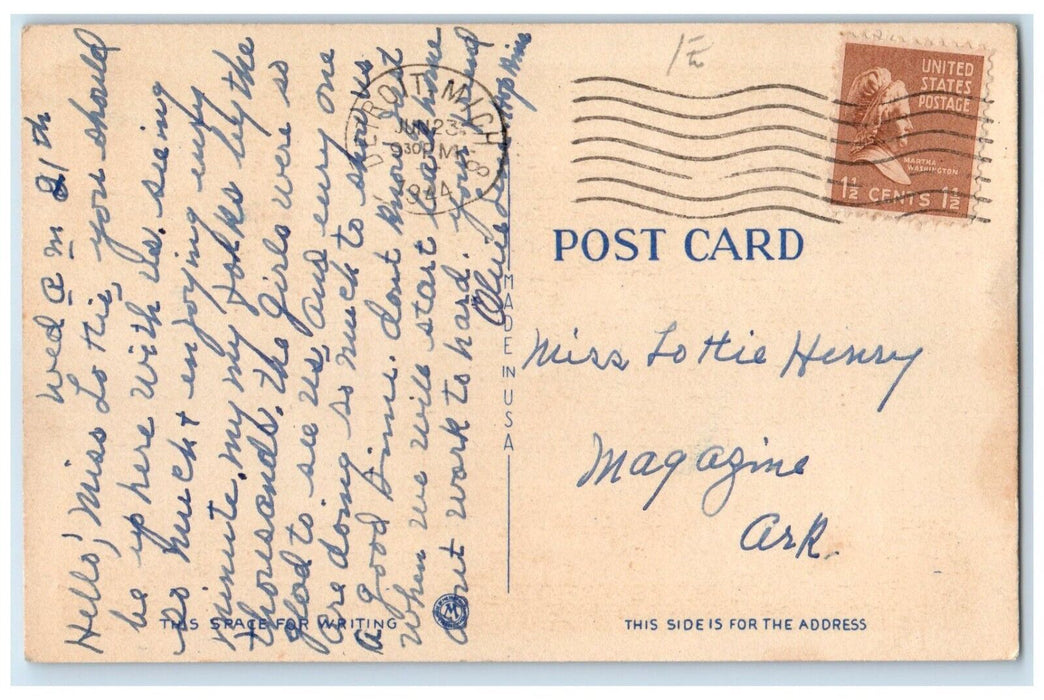 Wed a m 21 th
Hello, Miss Lottie, you should
be up here with us. seeing
so much & enjoying every
minute. my my folks by the
thousands. the girls were so
glad to see us, and every one
are doing so much to show us
a good time. dont know just
when we will start far home
dont work to hard. you
DETROIT, MICH.
JUN 23
9 30 PM
1944
8
UNITED
STATES
POSTAGE
MARTHA
WASHINGTON
1½ CENTS 1½
POST CARD
MADE IN USA
Miss Lottie Henry
Magazine
Ark.
THIS SPACE FOR WRITING
M
THIS SIDE IS FOR THE ADDRESS